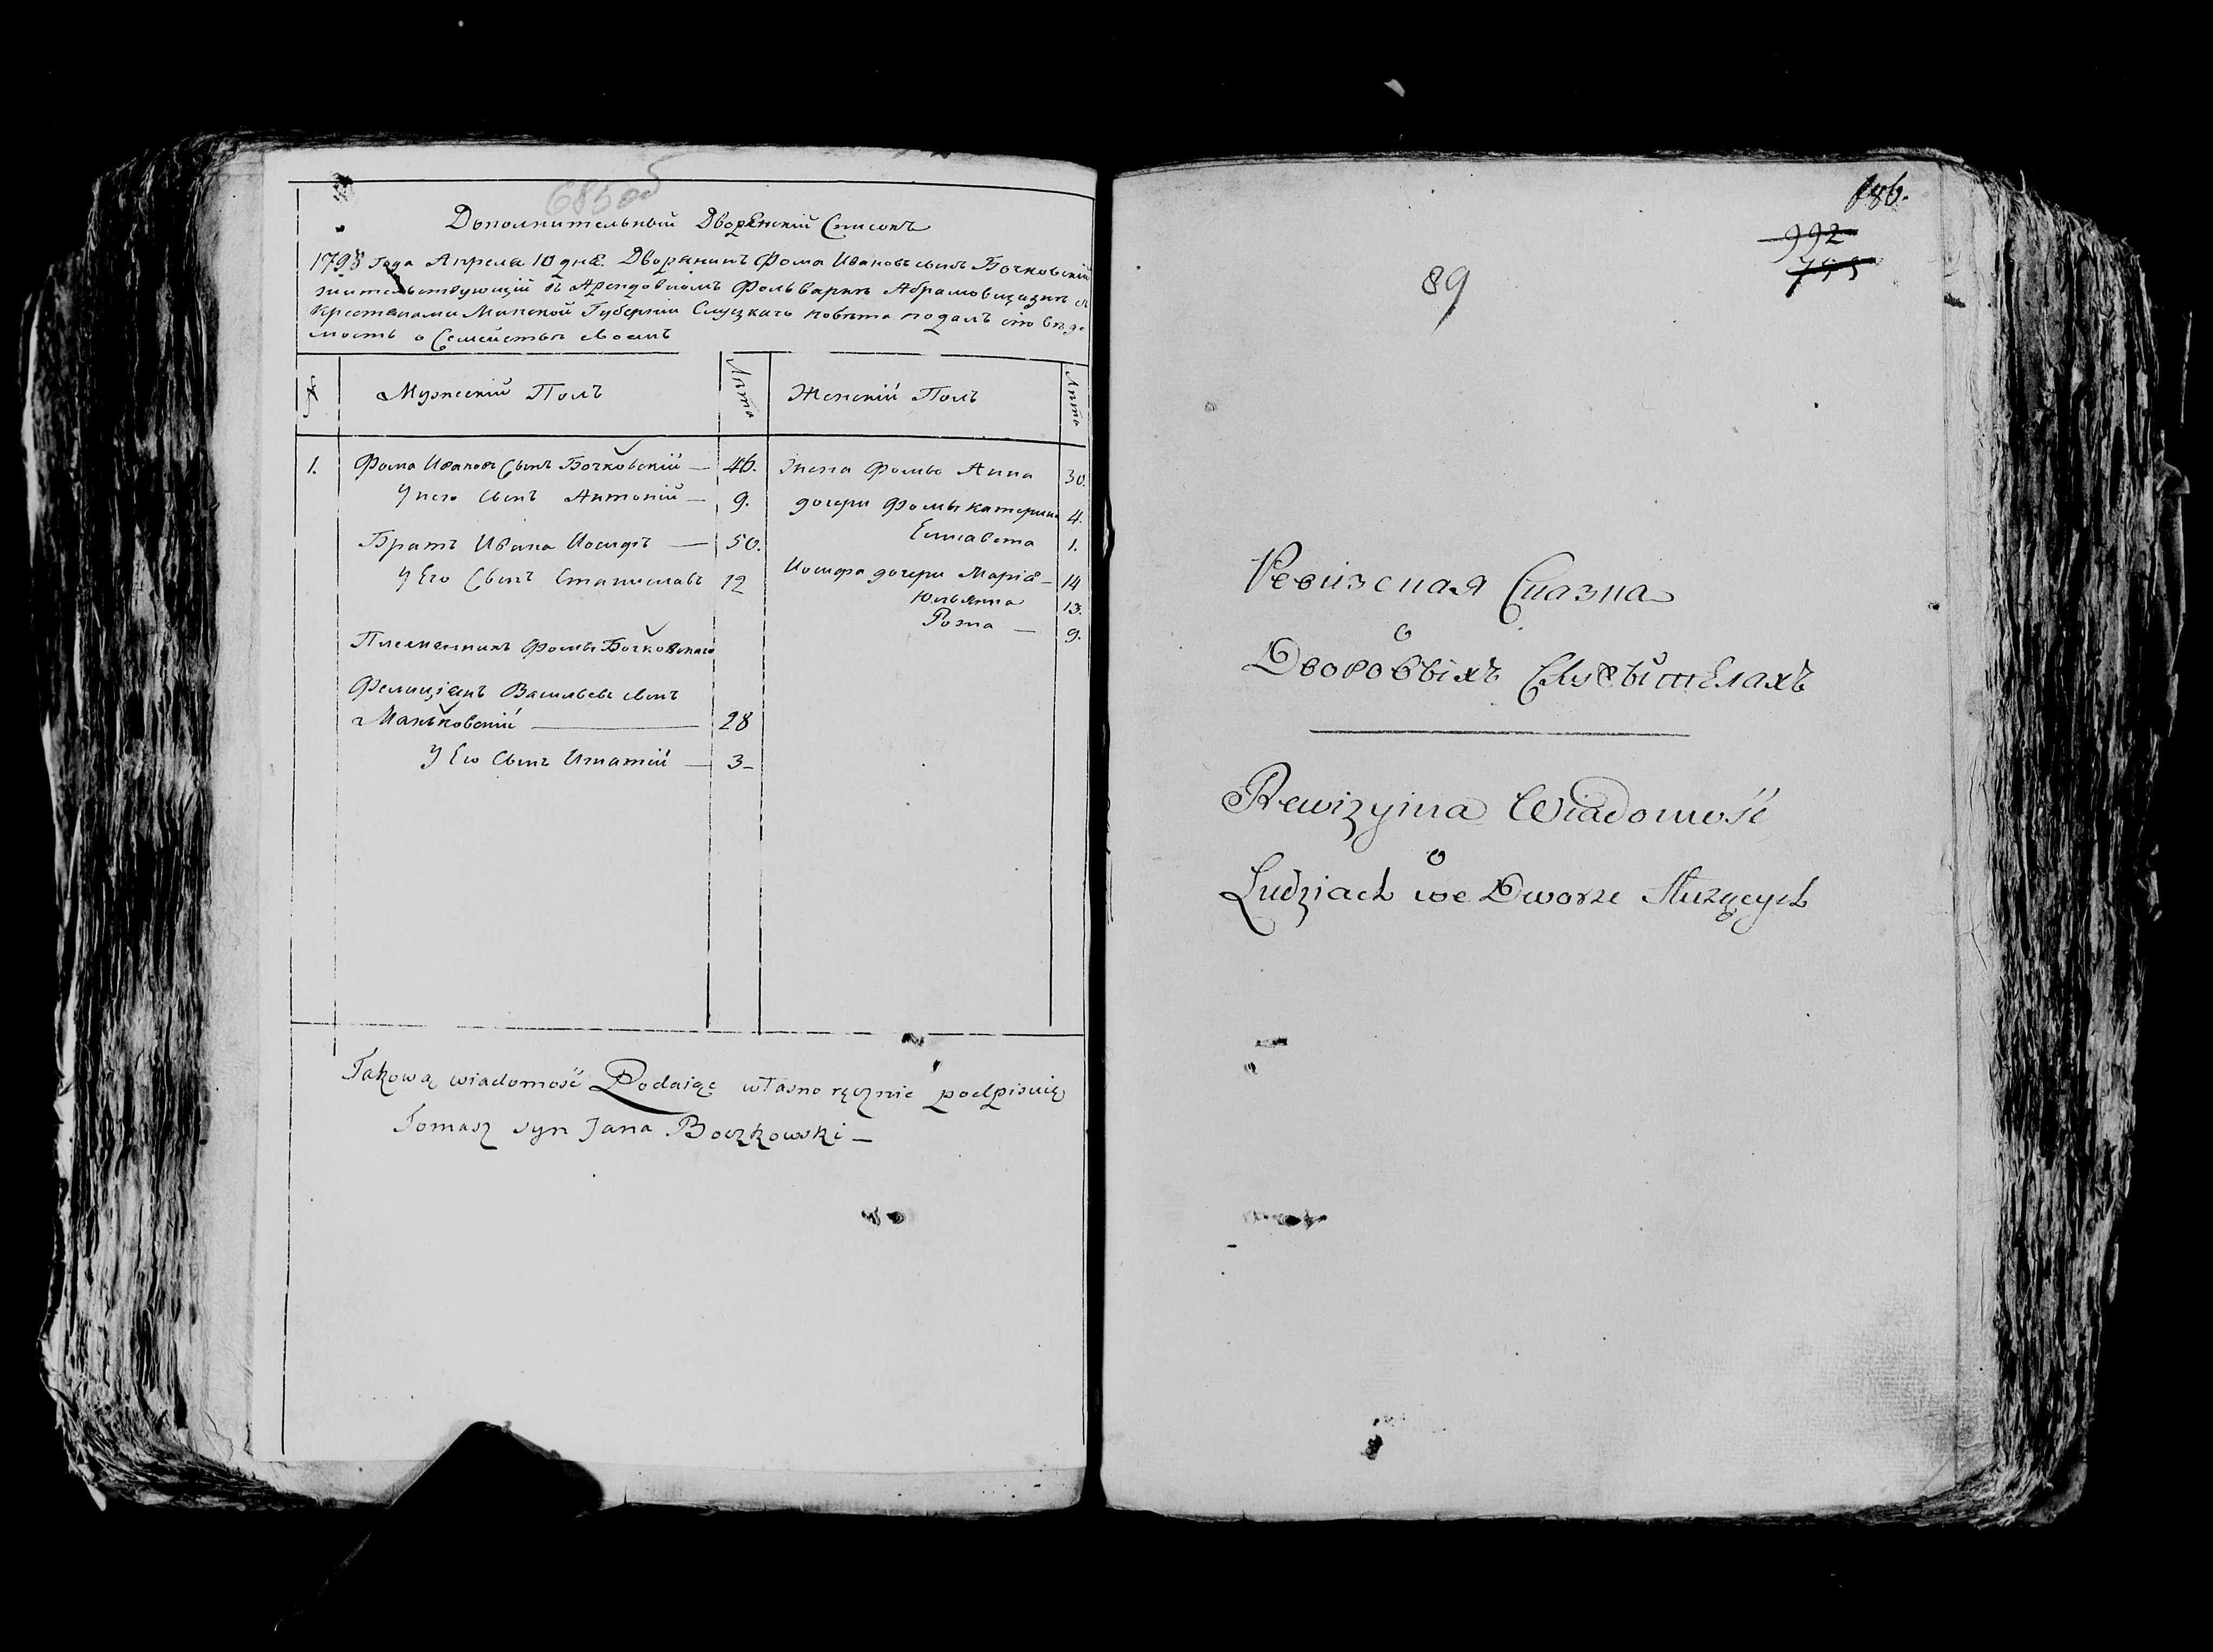 685 об
Дополнительный Дворянскій Списокъ
1795 Года Апреля 10 дня. Дворянинъ Фома Ивановъ сынъ Бочковскій
жительствующій въ Арендовномъ Фольваркѣ Абрамовщизнѣ съ
Крестянами Минской Губерніи Слуцкаго повѣта подалъ сію вѣдо
мость о Семействѣ своемъ
№ Мужескій Полъ Лѣта Женскій Полъ Лѣта
1. Фома Ивановъ Сынъ Бочковскій — 46. Жена Фомы Анна 30.
У него сынъ Антоній — 9. дочери Фомы Катерина 4.
Елисавета 1.
Братъ Ивана Иосифъ — 50.
У Его Сынъ Станиславъ 12 Иосифа дочери Марія — 14
Юльянна 13.
Рожа — 9.
Племянникъ Фомы Бочковскаго
Фелиціянъ Васильевъ сынъ
Маньковскій — 28
У Его Сынъ Игнатій — 3 –
Takową wiadomość Podaiąc własno ręcznie podpisuię
Tomasz syn Jana Boczkowski —
686.
992
89
Ревизская Сказка
О
Дворовыхъ Служытелахъ
Rewizyina Wiadomość
O
Ludziach we Dworze służących